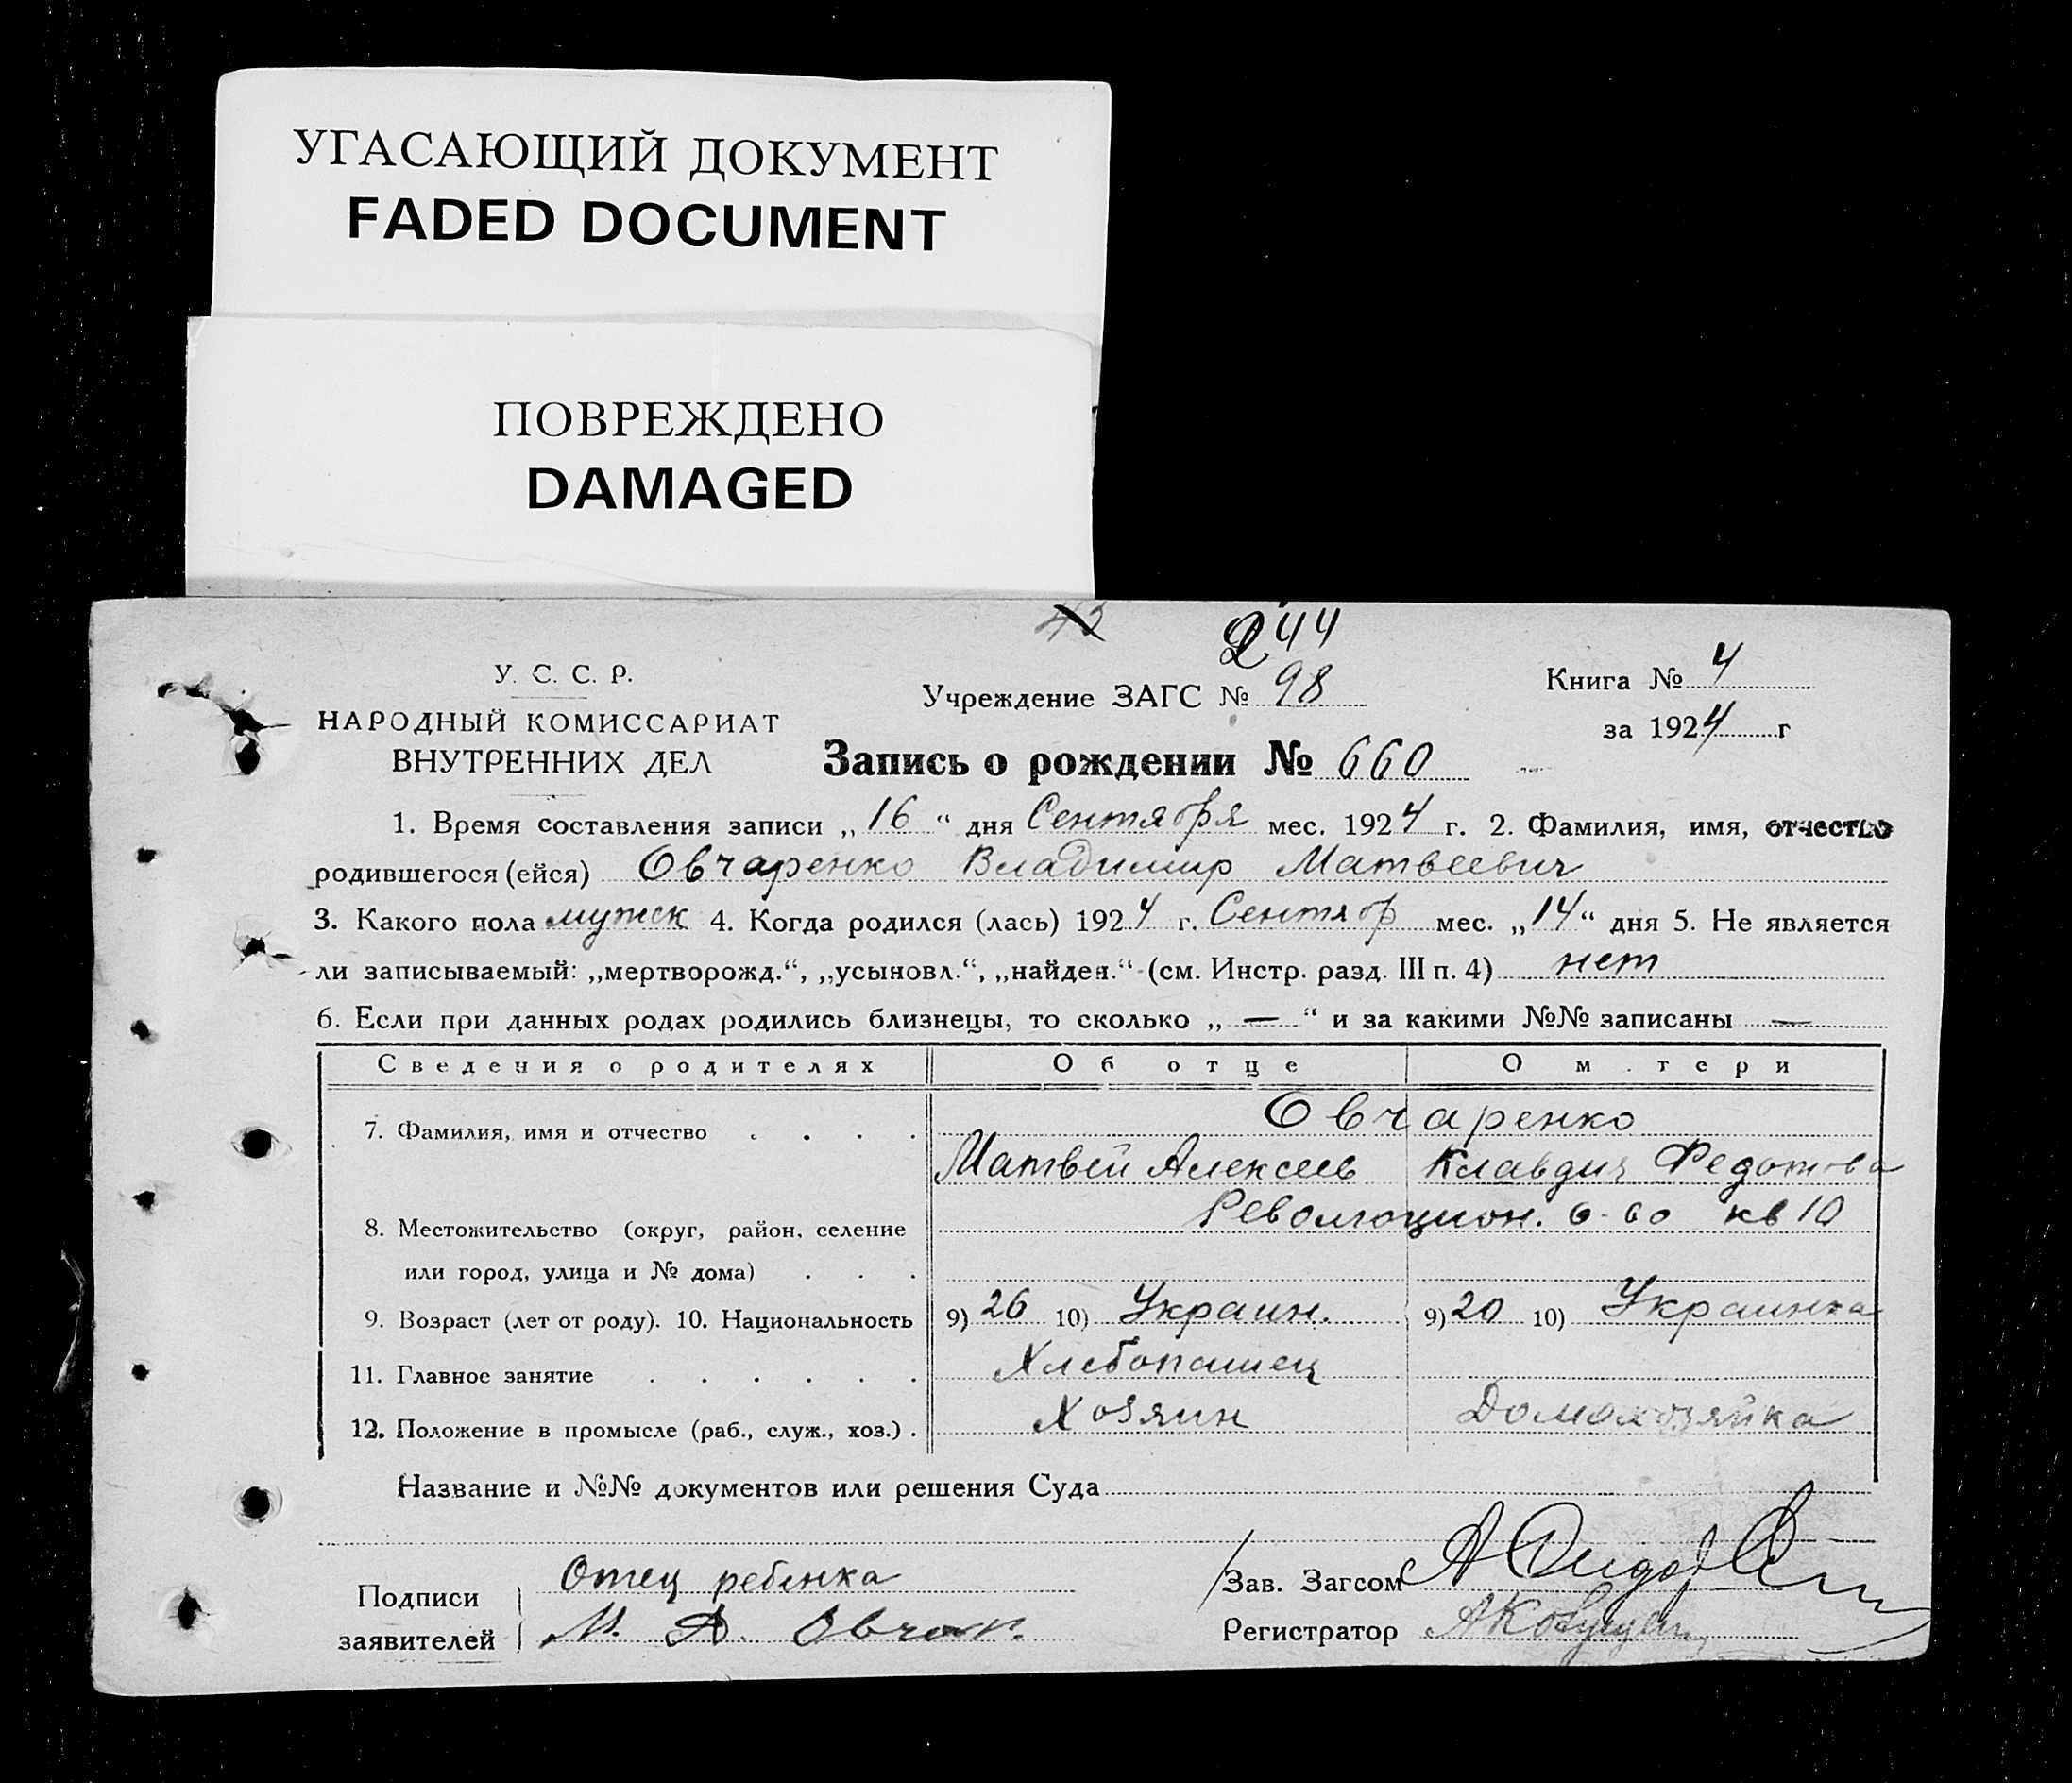 УГАСАЮЩИЙ ДОКУМЕНТ
FADED DOCUMENT
ПОВРЕЖДЕНО
DAMAGED
244
У. С. С. Р.
НАРОДНЫЙ КОМИССАРИАТ
ВНУТРЕННИХ ДЕЛ
Учреждение ЗАГС № 98
Книга № 4
за 1924 г
Запись о рождении № 660
1. Время составления записи „16“ дня Сентября мес. 1924 г. 2. Фамилия, имя, отчество
родившегося (ейся) Овчаренко Владимир Матвеевич
3. Какого пола мужск 4. Когда родился (лась) 1924 г. Сентябр мес. „14“ дня 5. Не является
ли записываемый: „мертворожд.“, „усыновл.“, „найден.“ (см. Инстр. разд. III п. 4) нет
6. Если при данных родах родились близнецы, то сколько „ — “ и за какими №№ записаны —
Сведения о родителях Об отце О м.тери
7. Фамилия, имя и отчество . . . . Овчаренко
Матвей Алексеев Клавдия Федотова
8. Местожительство (округ, район, селение Революцион. кв 10
или город, улица и № дома) . . .
9. Возраст (лет от роду). 10. Национальность 9) 26 10) Украин. 9) 20 10) Украинка
11. Главное занятие . . . . . . Хлебопашец
12. Положение в промысле (раб., служ., хоз.) . Хозяин Домохозяйка
Название и №№ документов или решения Суда
Подписи
заявителей
Отец ребенка
М. А. Овчар.
Зав. Загсом
Регистратор